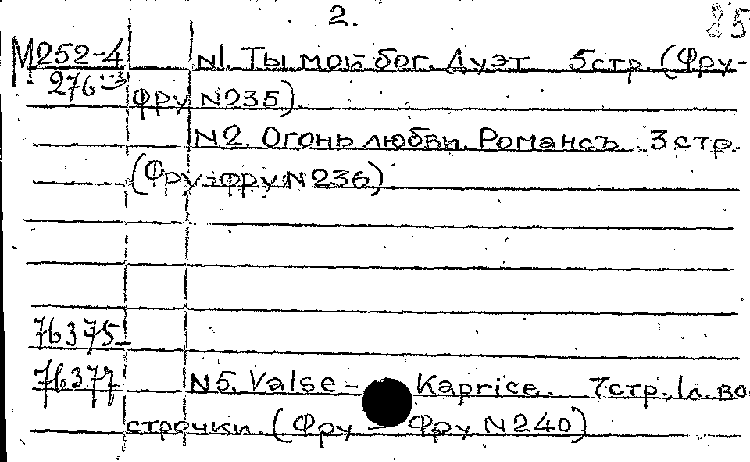 2. 25
М252-4 N1. Ты мой бог. Дуэт 5стр. (Фру-
276 фру N235)
N2. Огонь любви. Романсъ. 3стр.
(Фру-фру N236)
76375
76377 N5. Valse - Kaprice. 7стр.
строчки. (Фру - Фру N240)